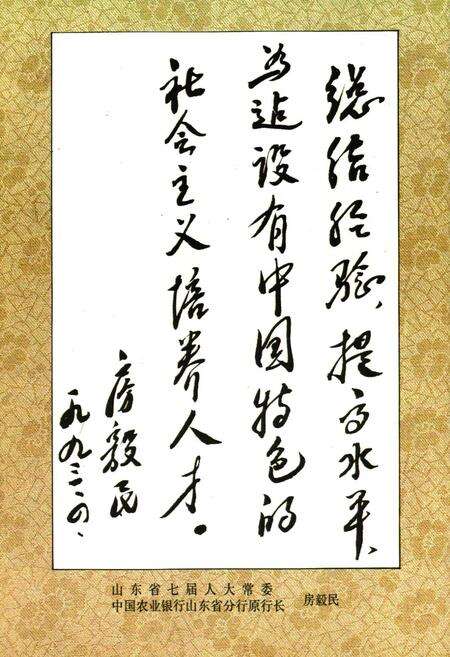 总结经验、提高水平、
为建设有中国特色的
社会主义培养人才。
房毅民
一九九三·四·
山东省七届人大常委
中国农业银行山东省分行原行长 房毅民